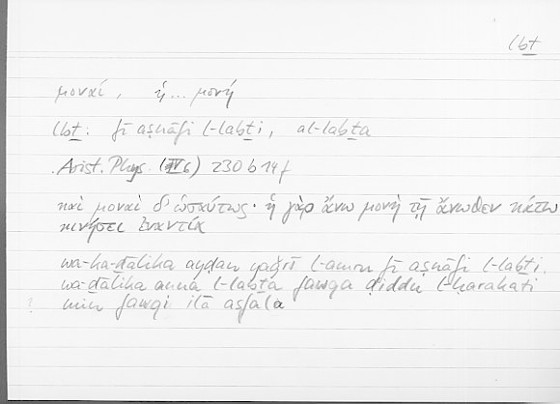 lbṯ
μοναί, ἡ ... μονή
lbṯ: fī aṣnāfi l-labṯi, al-labṯa
Arist. Phys. (V 6) 230 b 14 f
καὶ μοναὶ δ' ὡσαύτως· ἡ γὰρ ἄνω μονὴ τῇ ἄνωθεν κάτω
κινήσει ἐναντία
wa-ka-ḏālika ayḍan yaǧrī l-amru fī aṣnāfi l-labṯi.
wa-ḏālika anna l-labṯa fawqa ḍiddu l-ḥarakati
min fawqi ilā asfala